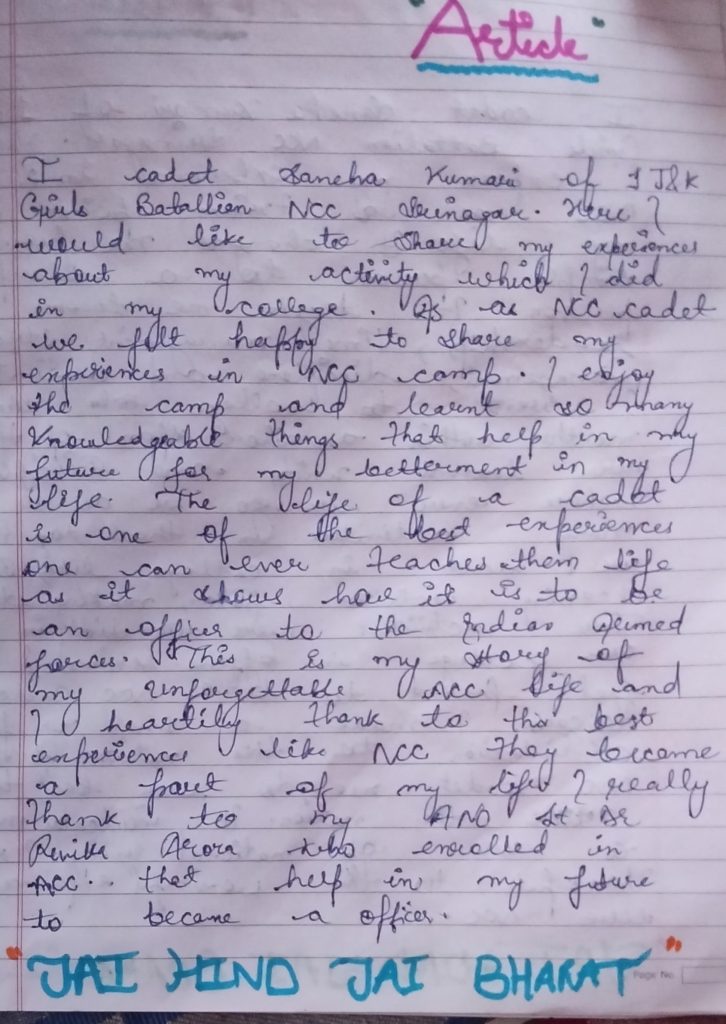 "Article"
I cadet Saneha Kumari of 1 J&K
Girls Batallion NCC Srinagar. Here I
would like to share my experiences
about my activity which I did
in my college. As as NCC cadet
we felt happy to share my
experiences in NCC camp. I enjoy
the camp and learnt so many
knowledgeable things that help in my
future for my betterment in my
life. The life of a cadet
is one of the best experiences
one can ever teaches them life
as it shows how it is to be
an officer to the Indian Armed
forces. This is my story of
my unforgettable NCC life and
I heartily thank to this best
experiences like NCC they become
a part of my life I really
thank to my ANO Lt Dr
Renika Arora who enrolled in
NCC.. that help in my future
to became a officer.
"JAI HIND JAI BHARAT"
Page No.